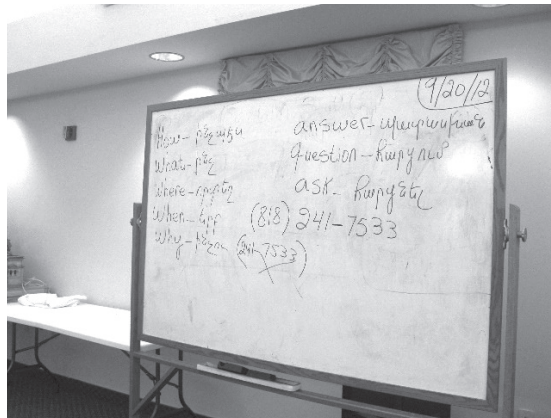 9/20/12
How - ինչպես
What - ինչ
Where - որտեղ
When - երբ
Why - ինչու
answer - պատասխան
question - հարցում
ask - հարցնել
(818) 241-7533
(241-7533)